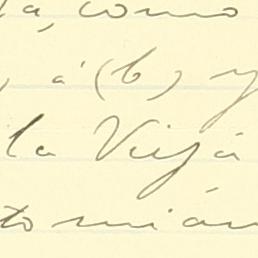 a, como
, á (b) y
la Vijá
to mián